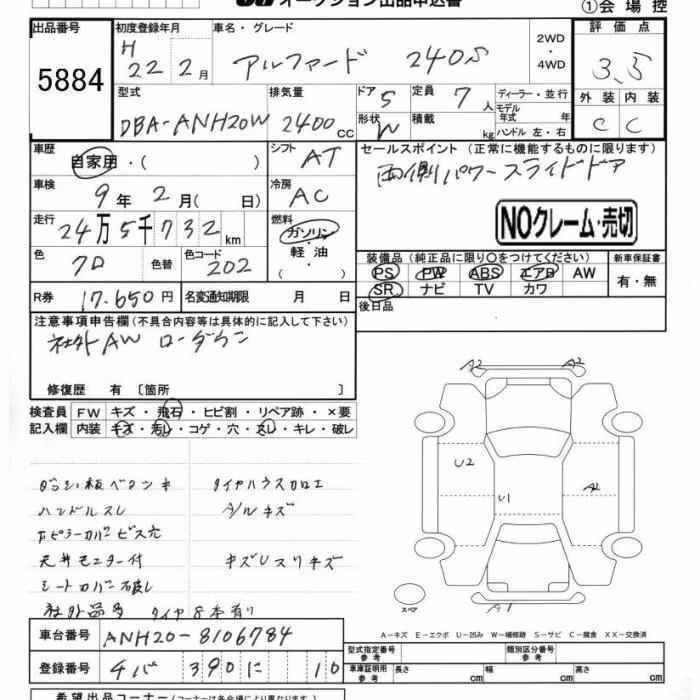 オークション出品申込書
①会場控
出品番号 5884
初度登録年月 H 22年 2月
車名・グレード アルファード 240S
2WD・4WD
評価点 3.5
外装 C 内装 C
型式 DBA-ANH20W
排気量 2400cc
ドア 5 形状 W
定員 7人
積載 kg
ディーラー・並行
モデル年式 年
ハンドル 左・右
車歴 自家用・( )
シフト AT
セールスポイント (正常に機能するものに限ります)
両側パワースライドドア
車検 9年 2月( 日)
冷房 AC
NOクレーム・売切
走行 24万 5千 732km
燃料 ガソリン・軽油 ( )
色 クロ 色替 色コード 202
装備品 (純正品に限り○をつけてください) 新車保証書
PS PW ABS エアB AW 有・無
SR ナビ TV カワ
R券 17.650円 名変通知期限 月 日
後日品
注意事項申告欄 (不具合内容等は具体的に記入して下さい)
社外AW ローダウン
修復歴 有 〔箇所 〕
検査員 FW キズ・飛石・ヒビ割・リペア跡・×要
記入欄 内装 キズ・汚レ・コゲ・穴・スレ・キレ・破レ
A2 A2
ダッシュ板ベタツキ タイヤハウスカロエ
U2
A2
U1
ハンドルスレ A/Wキズ
ピラーカバービス穴
天井モニター付 キズUスリキズ
シートカバー破レ
社外品多 タイヤ8本有り
スペア A1
A−キズ E−エクボ U−凹み W−補修跡 S−サビ C−腐食 XX−交換済
車台番号 ANH20-8106784
型式指定番号 参考 類別区分番号 参考
登録番号 チバ 390 に 10
車庫証明用 参考 長さ cm 幅 cm 高さ cm
希望出品コーナー